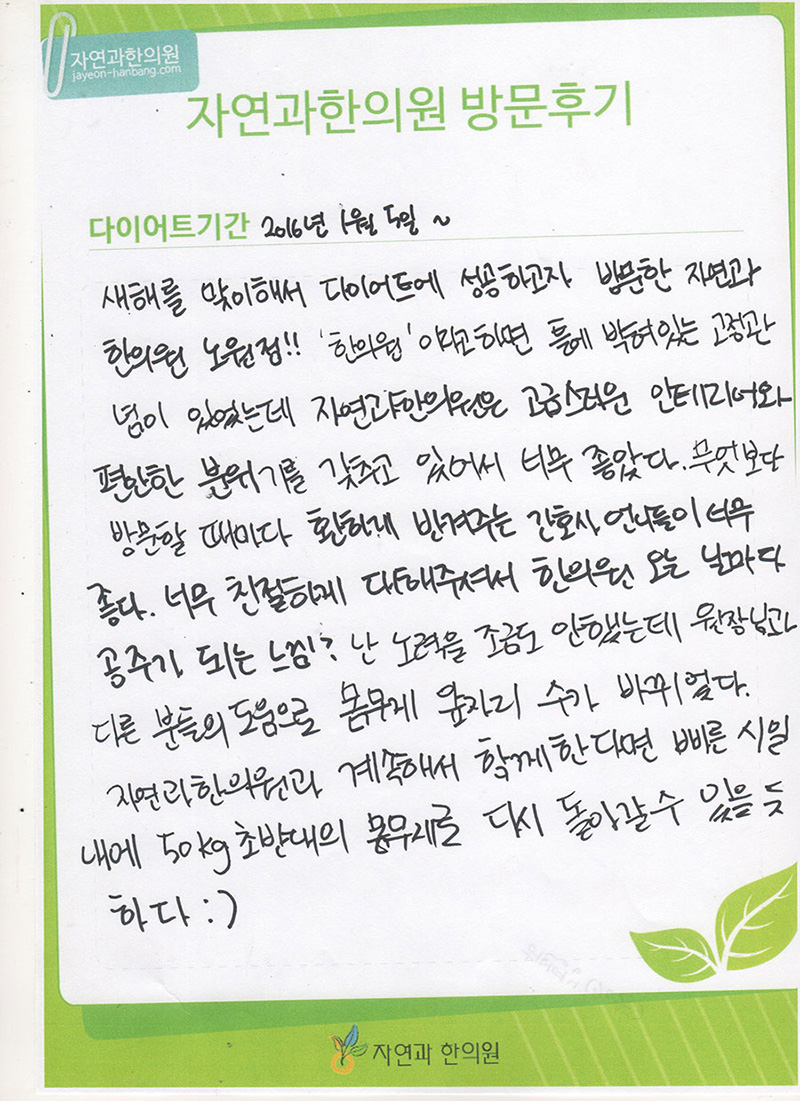 자연과한의원
jayeon-hanbang.com
자연과한의원 방문후기
다이어트기간 2016년 1월 5일 ~
새해를 맞이해서 다이어트에 성공하고자 방문한 자연과
한의원 노원점!! '한의원' 이라고하면 흔에 박혀있는 고정관
념이 있었는데 자연과한의원은 고급스러운 인테리어와
편안한 분위기를 갖추고 있어서 너무 좋았다. 무엇보다
방문할 때마다 환하게 반겨주는 간호사 언니들이 너무
좋다. 너무 친절하게 대해주셔서 한의원 오는 날마다
공주가 되는 느낌? 난 노력을 조금도 안했는데 원장님과
다른 분들의 도움으로 몸무게 앞자리 수가 바뀌었다.
자연과한의원과 계속해서 함께한다면 빠른 시일
내에 50kg 초반대의 몸무게로 다시 돌아갈 수 있을 듯
하다 :)
자연과 한의원